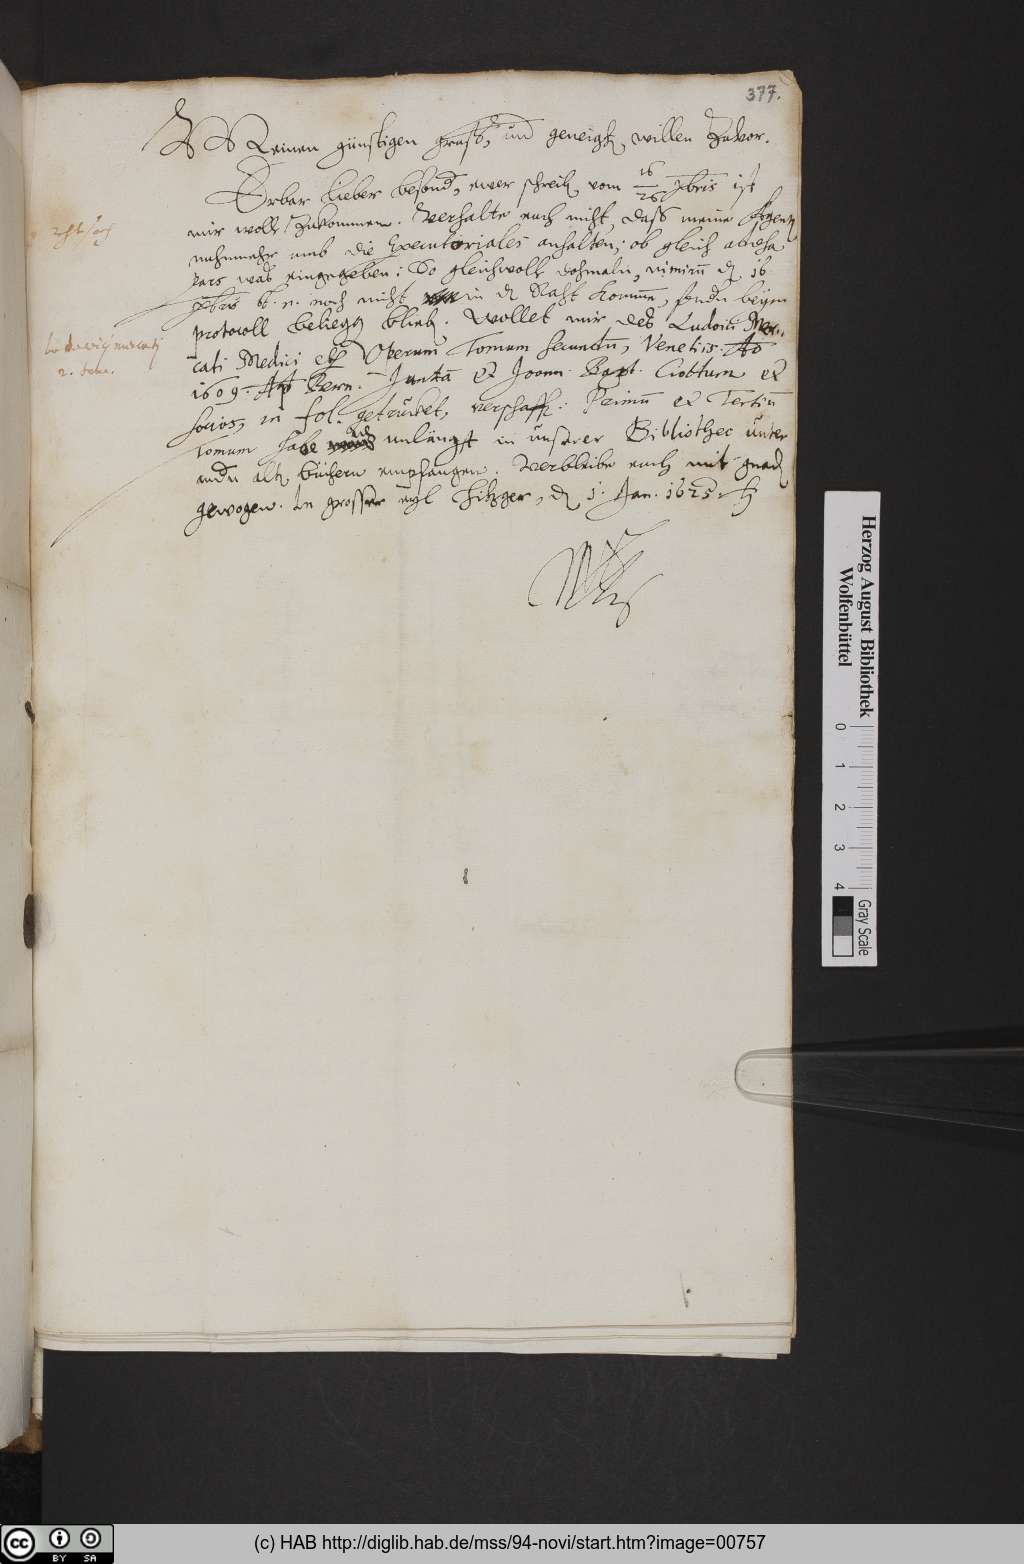 377.
Meinen günstigen gruß, und geneigt, willen zuvor.
Erbar lieber besond, ewer schreib, vom 16/26 Xbris ist
mir woll zukommen. Verhalte euch nicht, daß meine Agent
nuhnmehr umb die Executoriales anhalten; ob gleich
pars waß eingegeben: So gleichwoll dohmaln, nimirum d 16
Xbris noch nicht in d Raht kommen, sondn beym
protocoll beliegen blieb. Wollet mir deß Ludovici Mer-
cati Medici etc Operum Tomum secundum, Venetiis. Ao
1609. Ap Bern. Juntam et Joann. Bapt. Ciottum et
socios, in fol. getrucket, verschaff: Primum et Tertium
Tomum habe unlängst in unserer Bibliothec unter
andn alt büchern empfangen. Verbleibe euch mit gnad
gewogen. In grosser eyl Hitzger, d 1. Jan. 1625
Ludovicij mercatj
2. tom.
Herzog August Bibliothek
Wolfenbüttel
0 1 2 3 4
Gray Scale
CC BY SA
(c) HAB http://diglib.hab.de/mss/94-novi/start.htm?image=00757